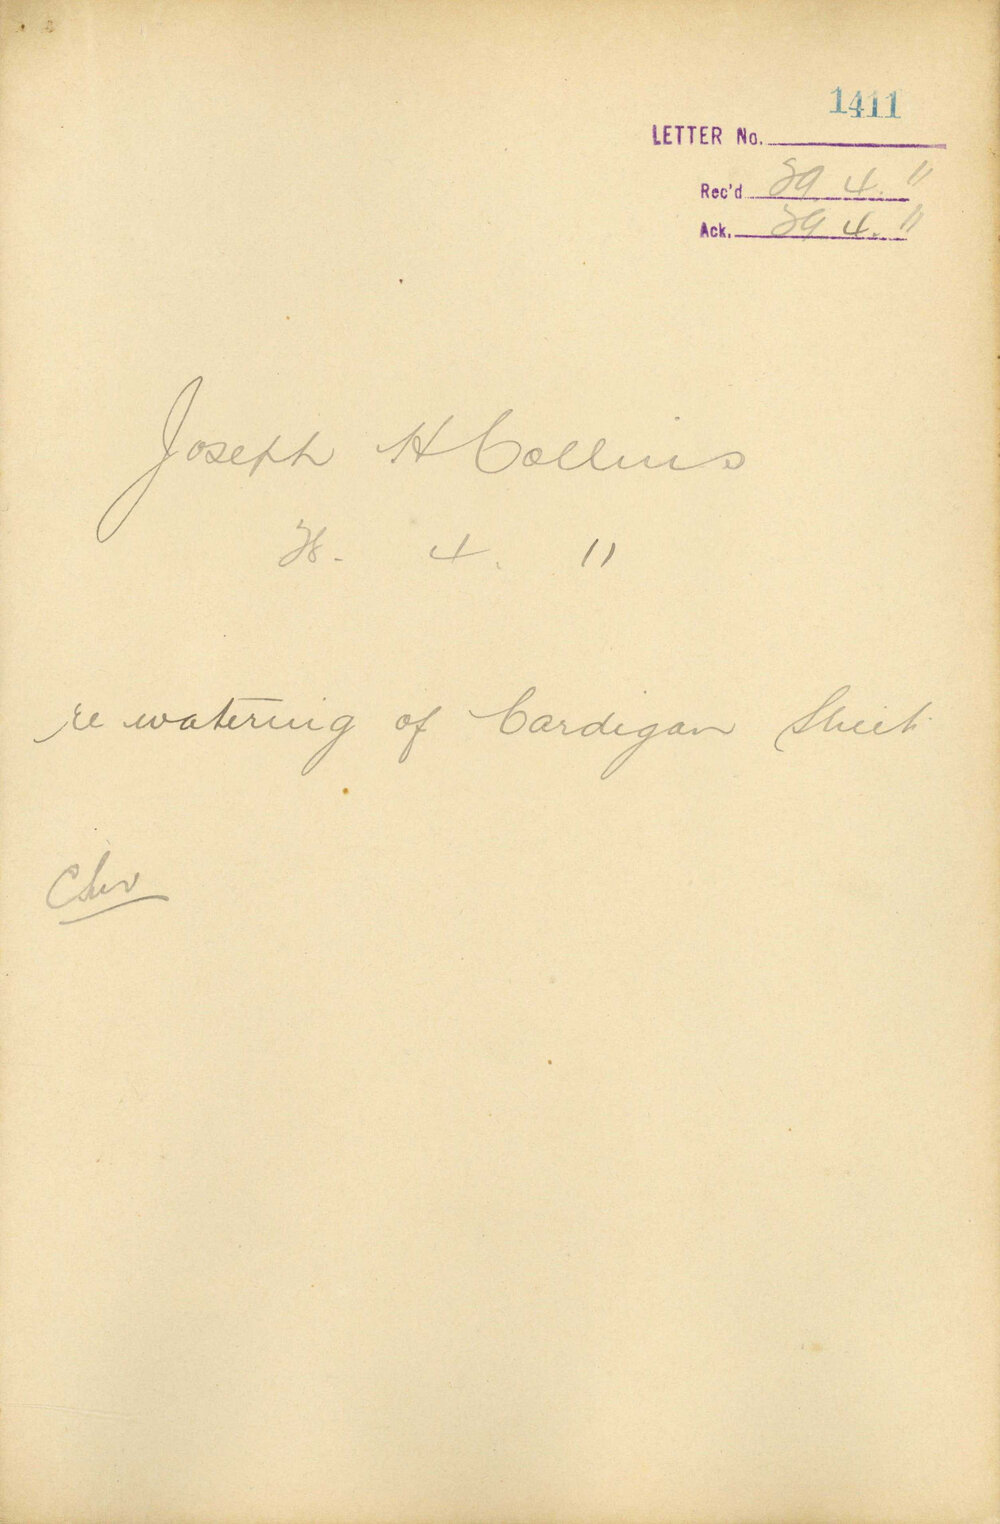 1411
LETTER No.
Rec'd 29 4. 11
Ack. 29 4. 11
Joseph H Collins
28. 4. 11
re watering of Cardigan Street